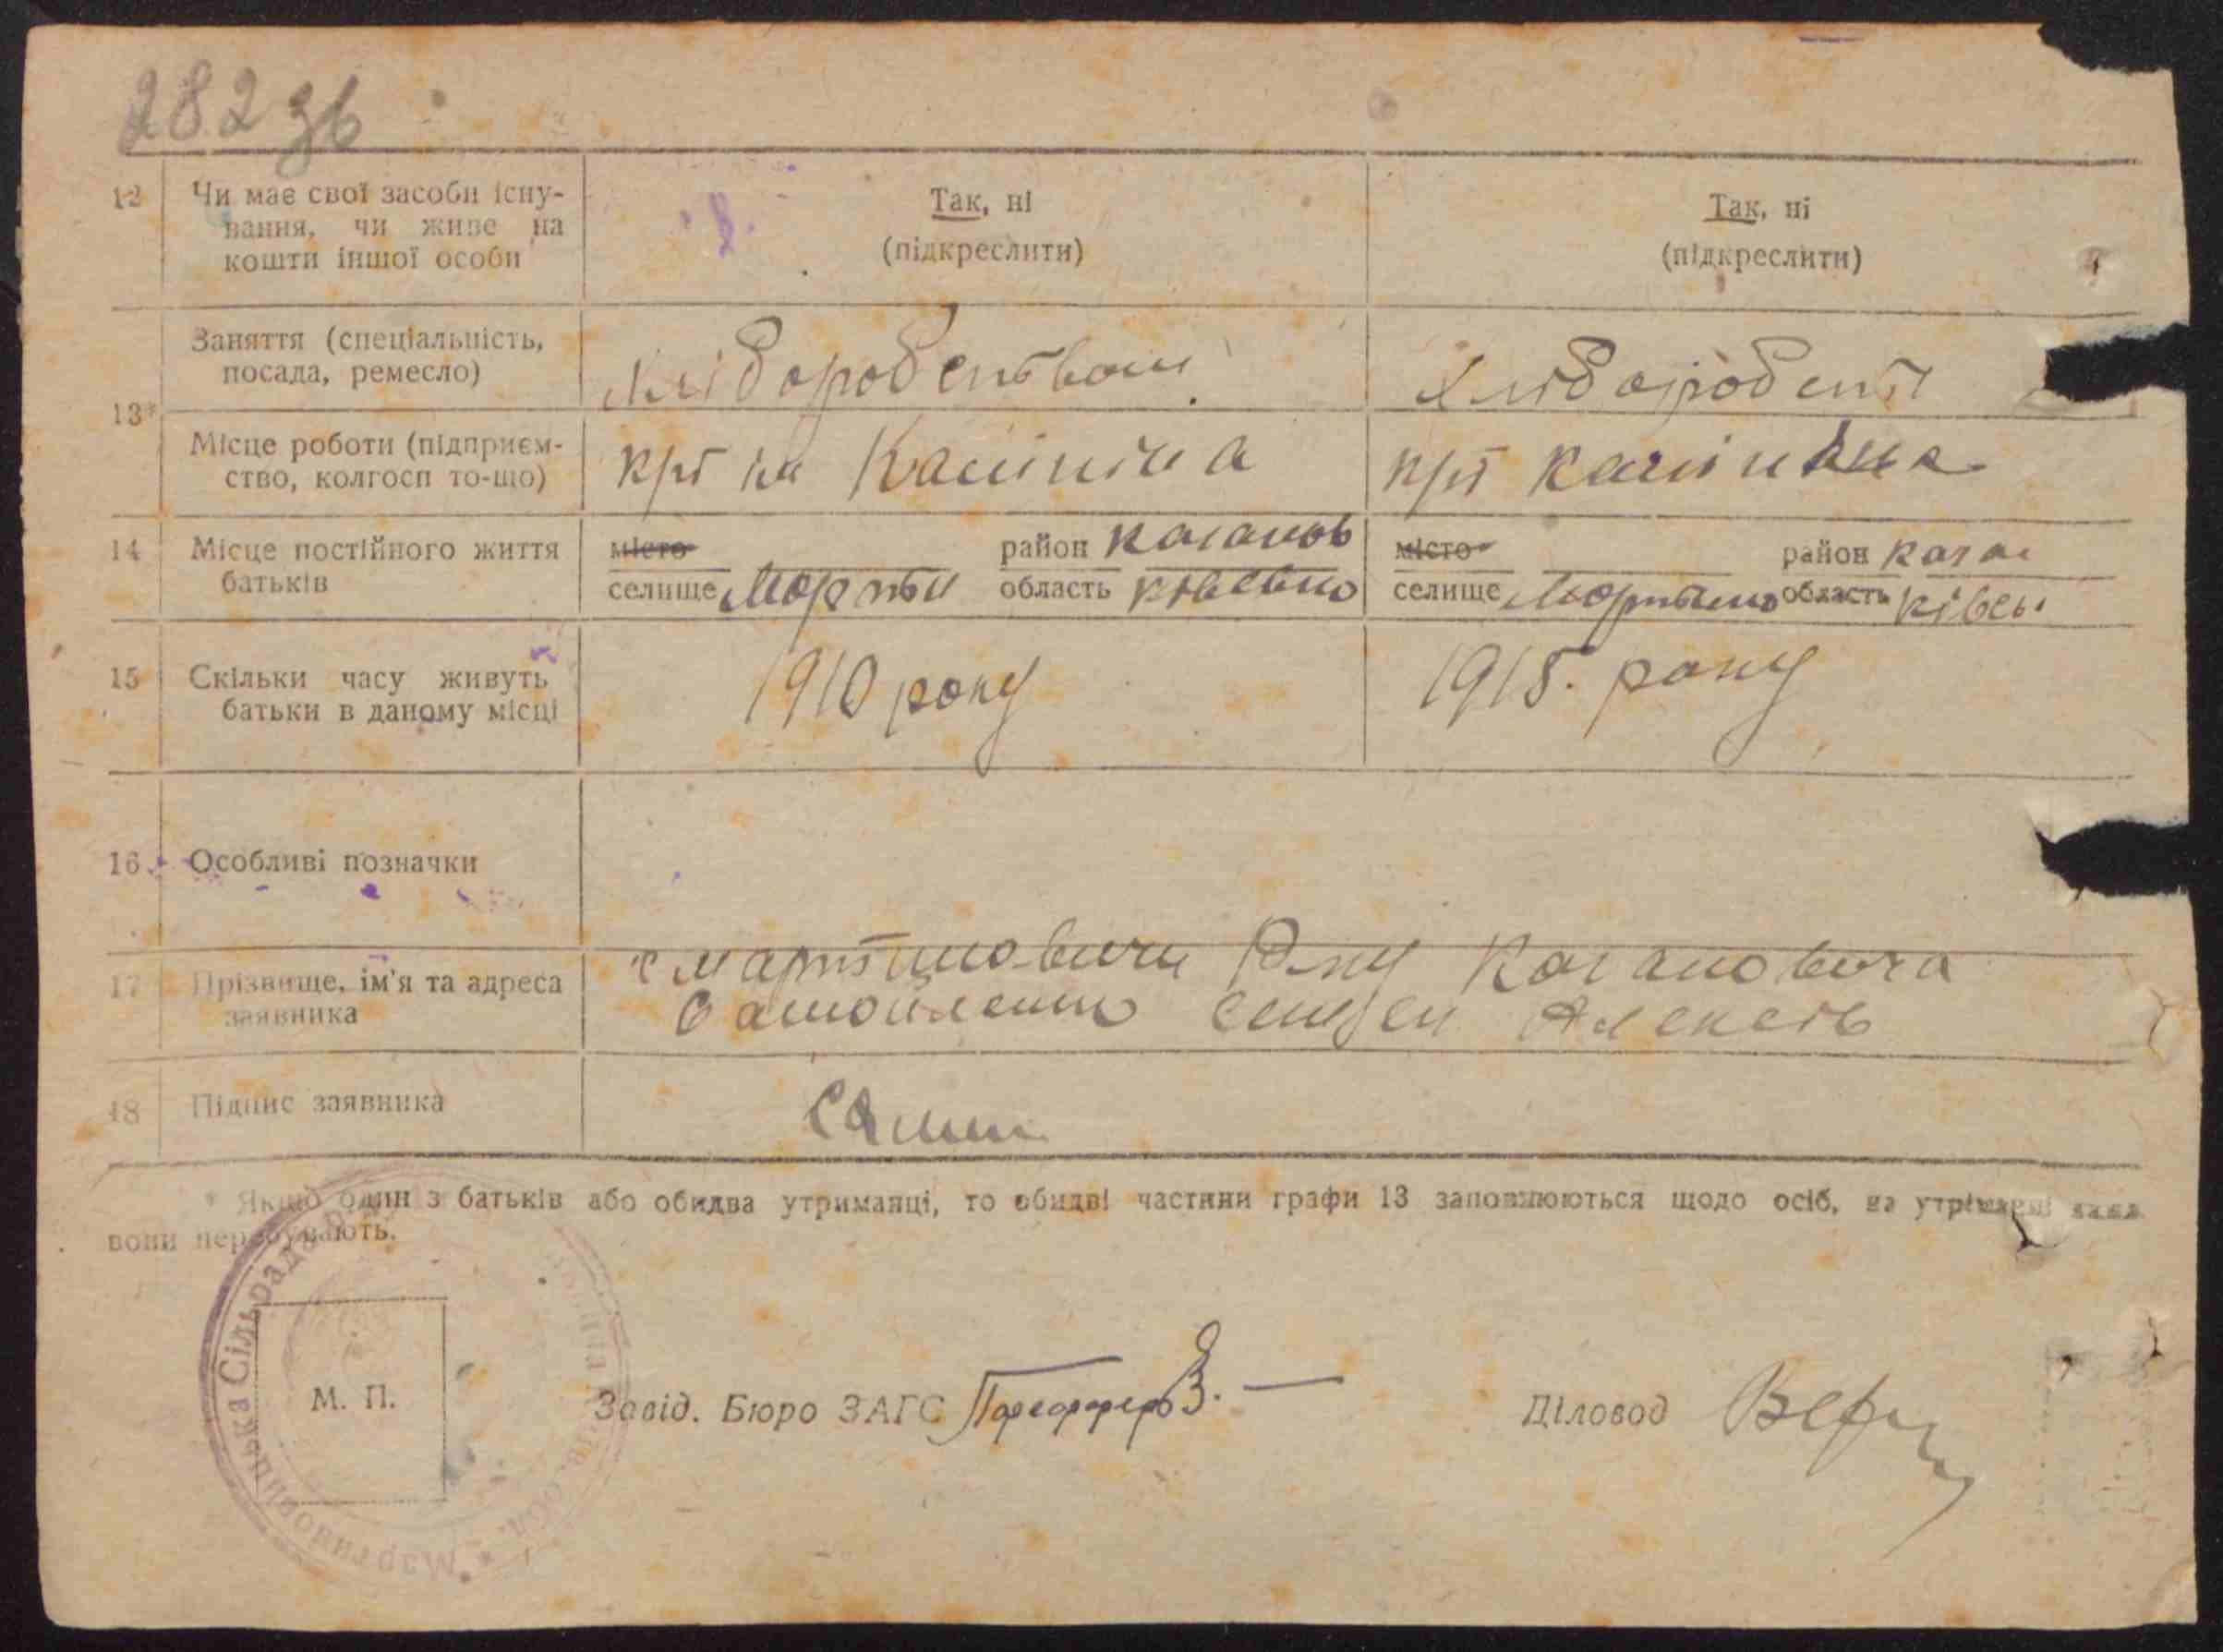 282 зв
12 Чи має свої засоби існу-
вання, чи живе на
кошти іншої особи
Так, ні
(підкреслити)
Так, ні
(підкреслити)
13*
Заняття (спеціальність,
посада, ремесло)
хліборобством
хлібороб
Місце роботи (підприєм-
ство, колгосп то-що)
крт ім Калініна
крт Калініна
14 Місце постійного життя
батьків
місто район Каганов
селище область Київсько
місто район Кага
селище область
15 Скільки часу живуть
батьки в даному місці
1910 року
1915. року
16 Особливі позначки
17 Прізвище, ім'я та адреса
заявника
с Мартиновичи Р-ну Кагановича
Самойленко Алексей
18 Підпис заявника
Самой
* Якщо один з батьків або обидва утриманці, то обидві частини графи 13 заповнюються щодо осіб, на утриманні яких
вони перебувають.
Сільрада
М. П.
Завід. Бюро ЗАГС
Діловод